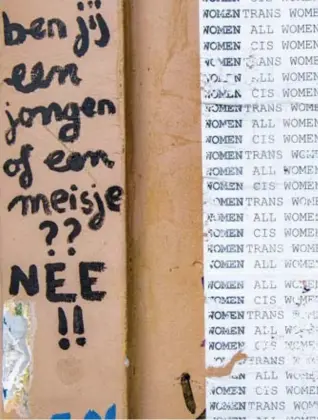 ben jij
een
jongen
of een
meisje
??
NEE
!!
EN
WOMEN TRANS WOME
WOMEN ALL WOMEN
WOMEN CIS WOMEN
WOMEN ANS WOME
WOMEN ALL WOMEN
WOMEN CIS WOMEN
WOMEN TRANS WOME
WOMEN ALL WOMEN
WOMEN CIS WOMEN
WOMEN TRANS WOME
WOMEN ALL WOMEN
WOMEN CIS WOMEN
WOMEN TRANS WOME
WOMEN ALL WOMEN
WOMEN CIS WOMEN
WOMEN TRANS WOME
WOMEN ALL WOMEN
WOMEN ALL WOMEN
WOMEN CIS WOMEN
WOMEN TRANS
WOMEN ALL WOMEN
WOMEN CIS WOMEN
TRANS WOME
WOMEN ALL WOMEN
WOMEN CIS WOMEN
WOMEN TRANS WOME